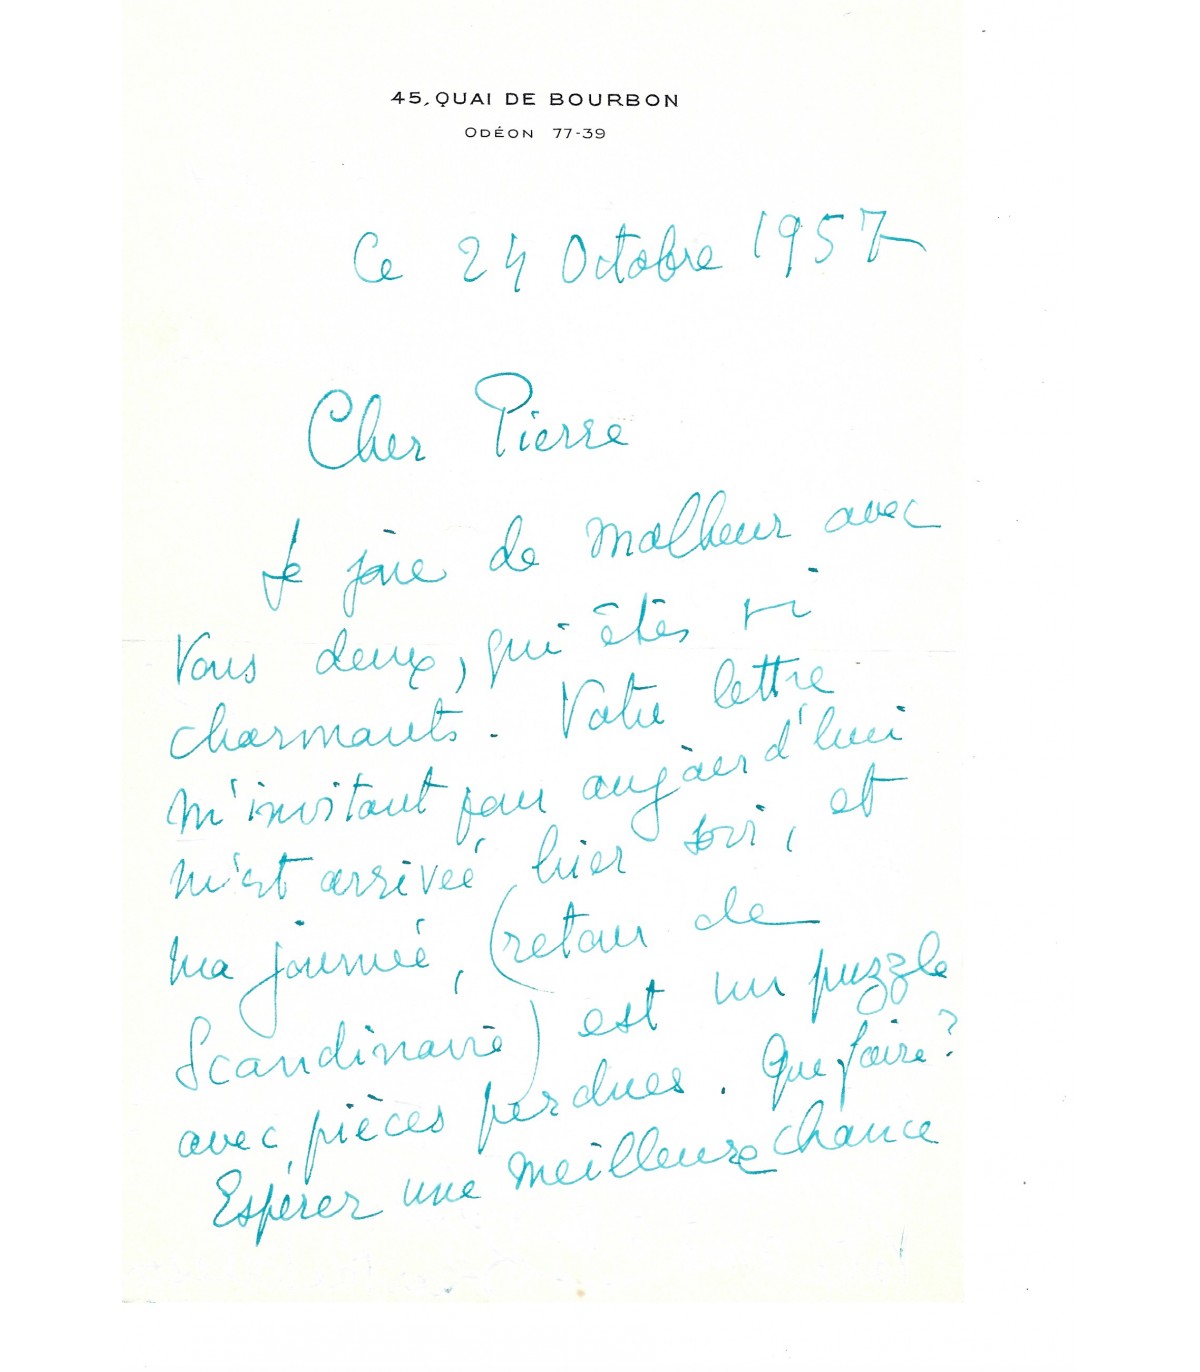 45, QUAI DE BOURBON
ODÉON 77-39
Ce 24 Octobre 1957
Cher Pierre
Je joue de malheur avec
Vous deux, qui êtes si
charmants. Votre lettre
m'invitant pour aujourd'hui
m'est arrivée hier soir, et
ma journée, (retour de
Scandinavie) est un puzzle
avec pièces perdues. Que faire?
Espérer une meilleure chance